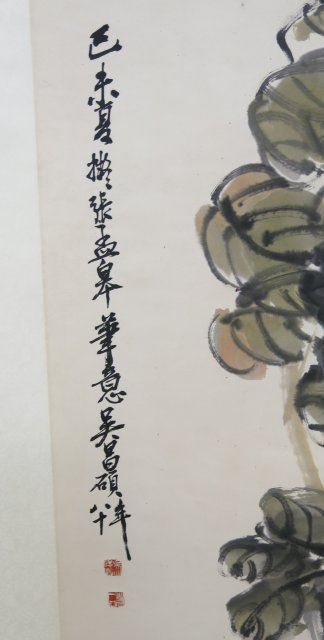 己未夏擬張孟皋筆意吳昌碩年八十